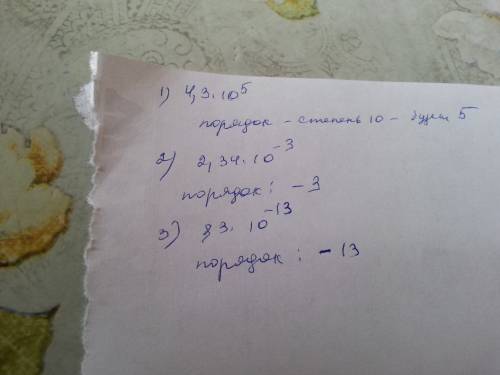 1) 4,3·10⁵
порядок – степень 10 – будет 5
2) 2,34·10⁻³
порядок: -3
3) 3· 10⁻¹³
порядок: -13